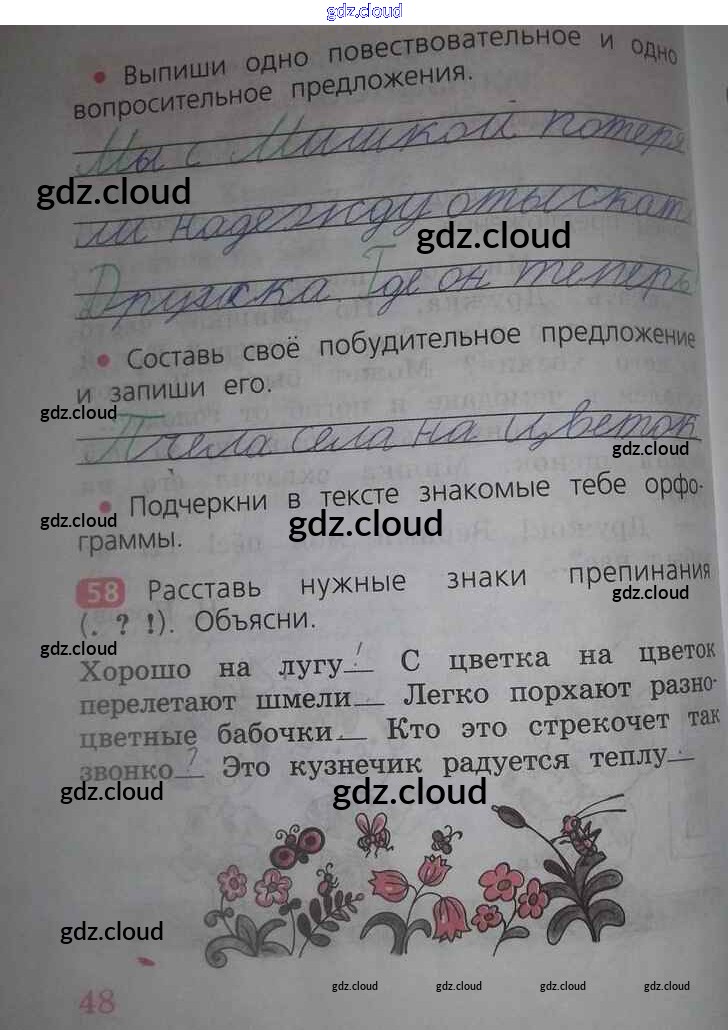 gdz.cloud
• Выпиши одно повествовательное и одно
вопросительное предложения.
Мы с Мишкой потеря
gdz.cloud
ли надежду отыскать
gdz.cloud
Дружка Где он теперь
• Составь своё побудительное предложение
и запиши его.
gdz.cloud
Пчела села на цветок
gdz.cloud
• Подчеркни в тексте знакомые тебе орфо-
gdz.cloud gdz.cloud
граммы.
58 Расставь нужные знаки препинания
gdz.cloud
(. ? !). Объясни.
gdz.cloud
Хорошо на лугу ! С цветка на цветок
перелетают шмели Легко порхают разно-
цветные бабочки. Кто это стрекочет так
звонко ? Это кузнечик радуется теплу.
gdz.cloud gdz.cloud
gdz.cloud
48
gdz.cloud gdz.cloud gdz.cloud gdz.cloud